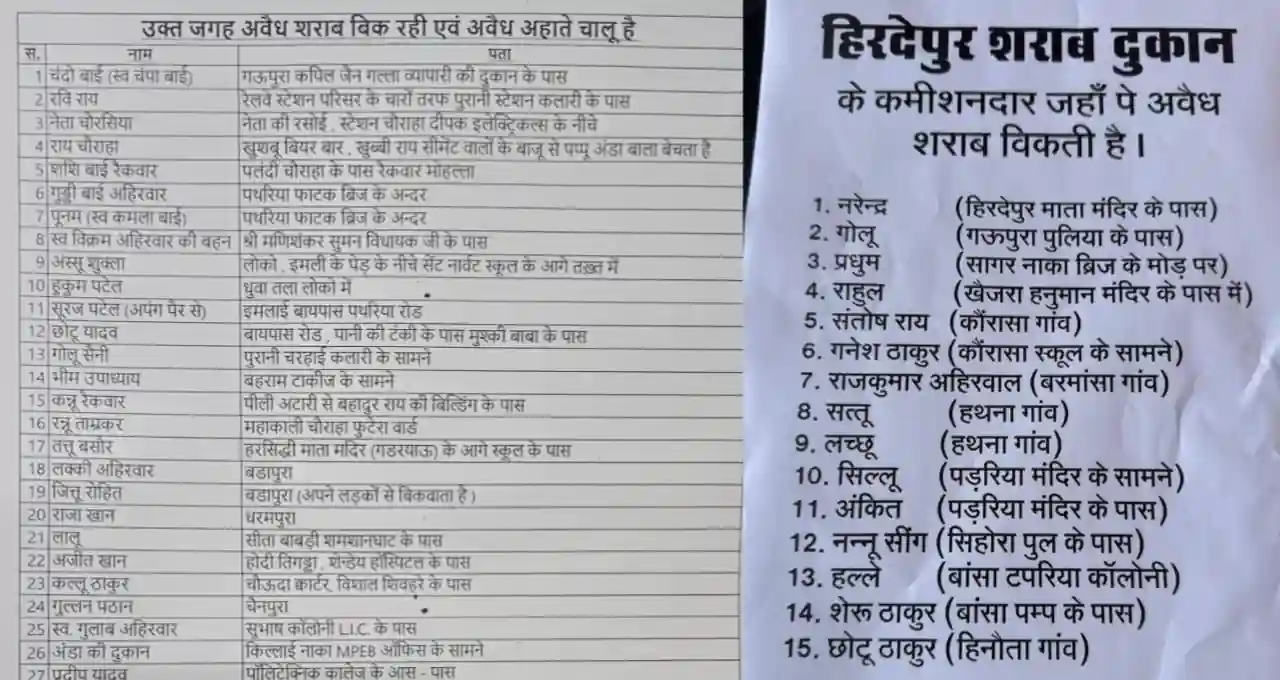 उक्त जगह अवैध शराब बिक रही एवं अवैध अहाते चालू है
स. नाम पता
1 चंदो बाई (स्व चंपा बाई) गऊपुरा कपिल जैन गल्ला व्यापारी की दुकान के पास
2 रवि राय रेलवे स्टेशन परिसर के चारों तरफ पुरानी स्टेशन कलारी के पास
3 नेता चौरसिया नेता की रसोई , स्टेशन चौराहा दीपक इलेक्ट्रिकल्स के नीचे
4 राय चौराहा खुशबू बियर बार , खुब्बी राय सीमेंट वालों के बाजू से पप्पू अंडा बाला बेचता है
5 शशि बाई रैकवार पलंदी चौराहा के पास रैकवार मोहल्ला
6 गुड्डी बाई अहिरवार पथरिया फाटक ब्रिज के अन्दर
7 पूनम (स्व कमला बाई) पथरिया फाटक ब्रिज के अन्दर
8 स्व विक्रम अहिरवार की बहन श्री मणिशंकर सुमन विधायक जी के पास
9 अस्सू शुक्ला लोको , इमली के पेड़ के नीचे सेंट नार्वट स्कूल के आगे तख़्त में
10 हुकुम पटेल धुवा तला लोको में
11 सूरज पटेल (अपंग पैर से) इमलाई बायपास पथरिया रोड
12 छोटू यादव बायपास रोड , पानी की टंकी के पास मुश्की बाबा के पास
13 गोलू सैनी पुरानी चरहाई कलारी के सामने
14 भीम उपाध्याय बहराम टाकीज के सामने
15 कन्नू रैकवार पीली अटारी से बहादुर राय की बिल्डिंग के पास
16 रन्नू ताम्रकर महाकाली चौराहा फुटेरा वार्ड
17 तत्तू बसोर हरसिद्धी माता मंदिर (गडरयाऊ) के आगे स्कूल के पास
18 लक्की अहिरवार बडापुरा
19 जित्तू रोहित बडापुरा (अपने लड़कों से बिकवाता है )
20 राजा खान धरमपुरा
21 लालू सीता बाबड़ी शमशानघाट के पास
22 अजीत खान होदी तिगड्डा , शेन्डेय हॉस्पिटल के पास
23 कल्लू ठाकुर चौऊदा क्वार्टर, विशाल शिवहरे के पास
24 गुल्लन पठान चैनपुरा
25 स्व. गुलाब अहिरवार सुभाष कॉलोनी L.I.C. के पास
26 अंडा की दुकान किल्लाई नाका MPEB ऑफिस के सामने
27 प्रदीप यादव पॉलिटेक्निक कालेज के आस - पास
हिरदेपुर शराब दुकान
के कमीशनदार जहाँ पे अवैध
शराब विकती है।
1. नरेन्द्र (हिरदेपुर माता मंदिर के पास)
2. गोलू (गऊपुरा पुलिया के पास)
3. प्रधुम (सागर नाका ब्रिज के मोड़ पर)
4. राहुल (खैजरा हनुमान मंदिर के पास में)
5. संतोष राय (कौंरासा गांव)
6. गनेश ठाकुर (कौंरासा स्कूल के सामने)
7. राजकुमार अहिरवाल (बरमांसा गांव)
8. सत्तू (हथना गांव)
9. लच्छू (हथना गांव)
10. सिल्लू (पड़रिया मंदिर के सामने)
11. अंकित (पड़रिया मंदिर के पास)
12. नन्नू सींग (सिहोरा पुल के पास)
13. हल्ले (बांसा टपरिया कॉलोनी)
14. शेरू ठाकुर (बांसा पम्प के पास)
15. छोटू ठाकुर (हिनौता गांव)